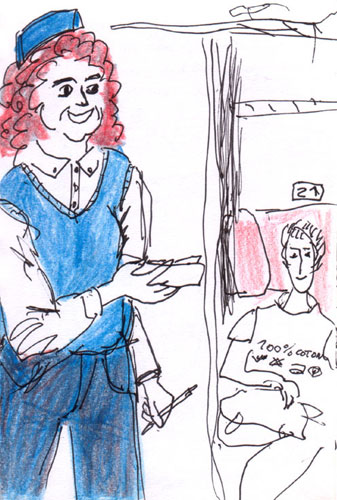 21
100% COTONE